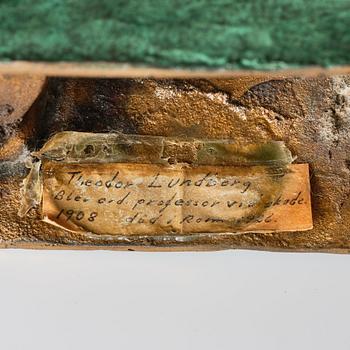 Theodor Lundberg
Blev ord. professor vid akade.
1908 död i Rom